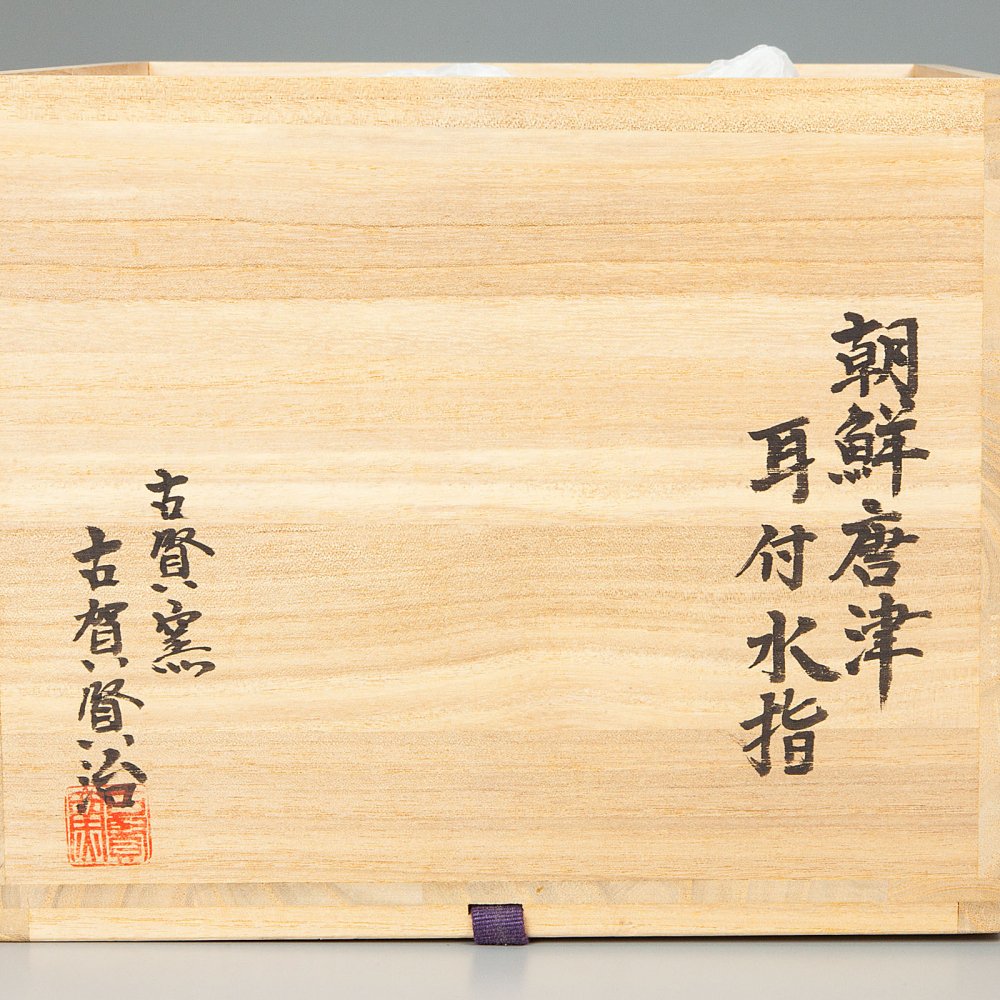 朝鮮唐津
耳付水指
古賢窯
古賀賢治